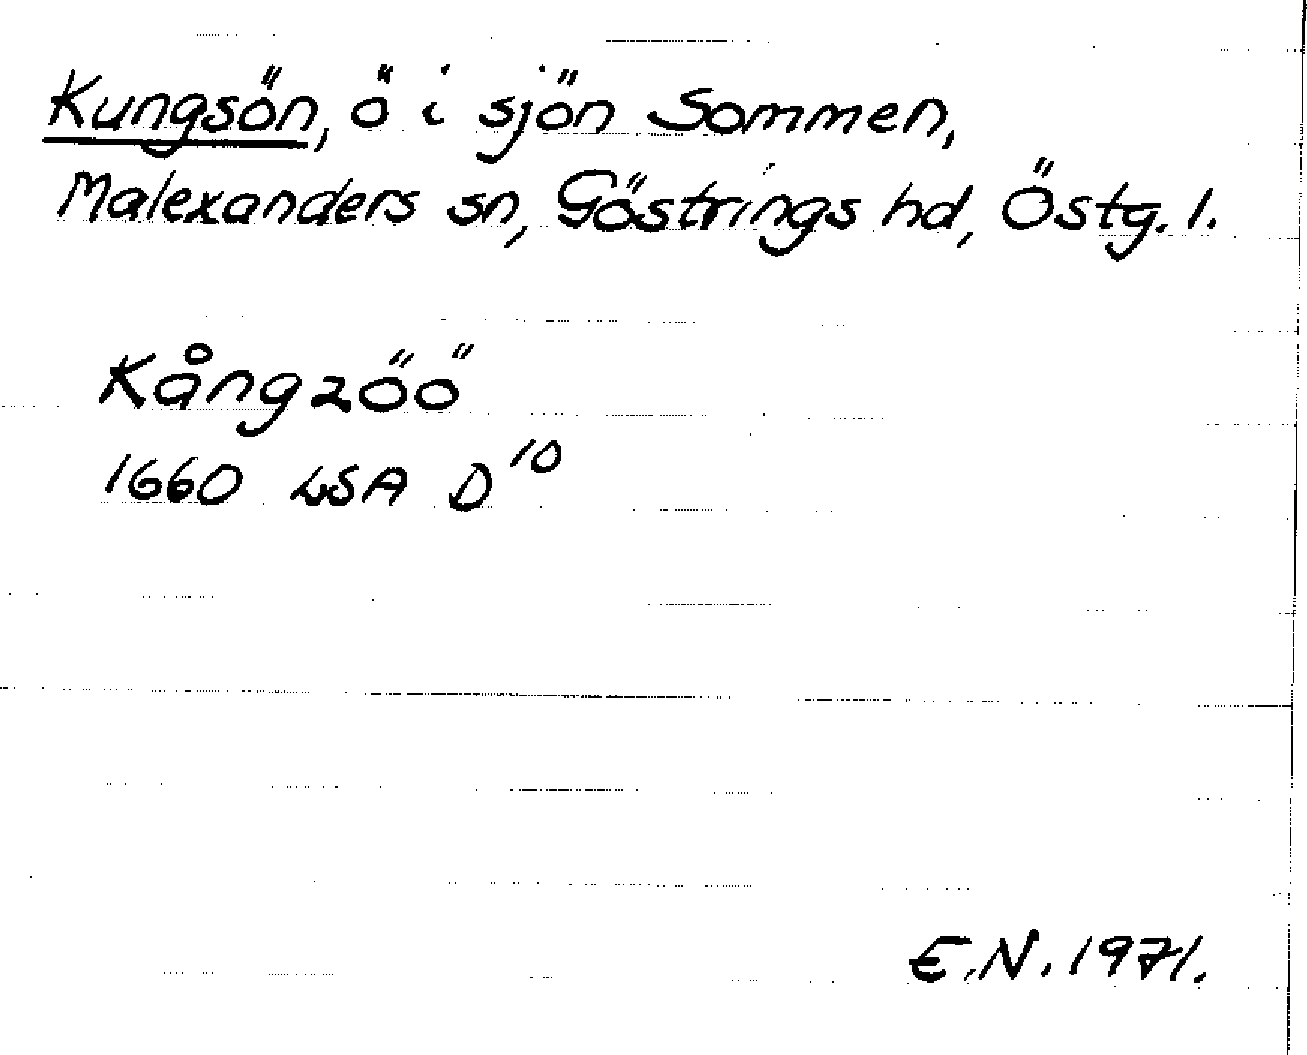 Kungsön, ö i sjön Sommen,
Malexanders sn, Göstrings hd, Östg. l.
Kångzöö
1660 LSA D10
E.N. 1971.